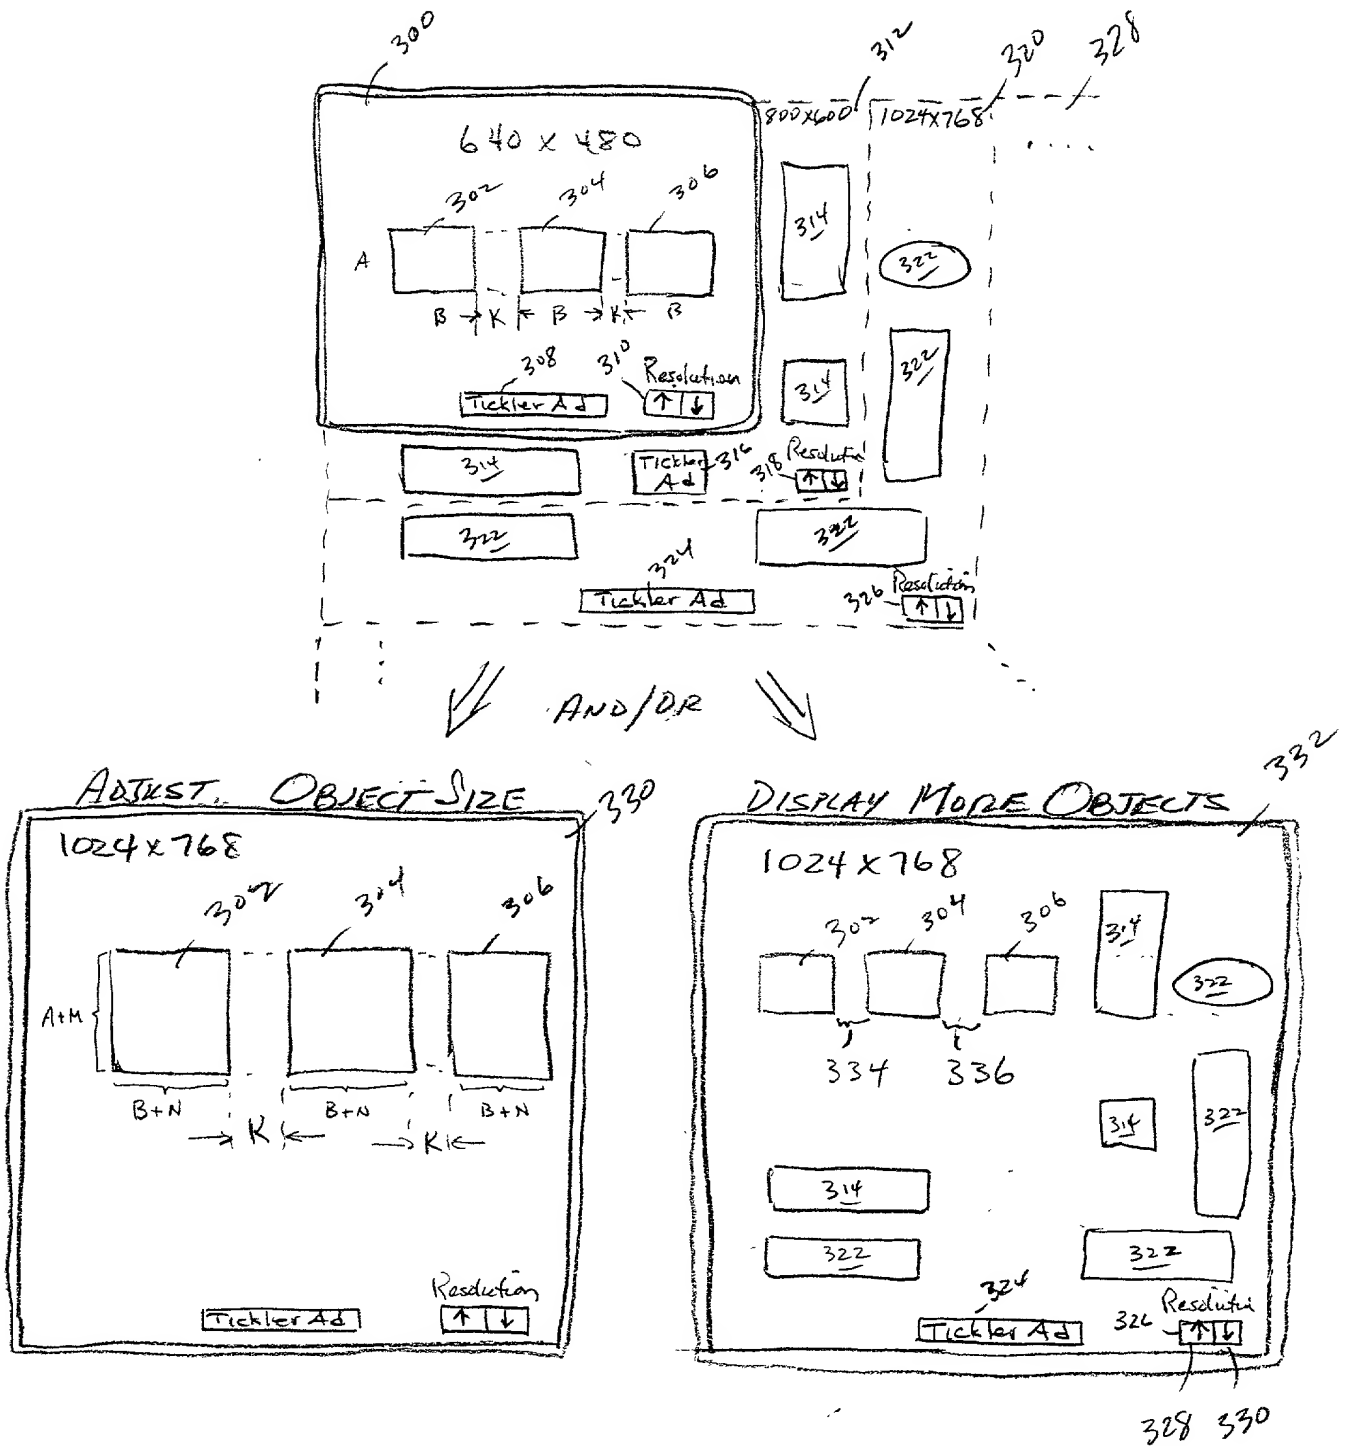 300
312
320
328
800x600
1024x768
640 x 480
302
304
306
314
A
322
B
K
B
K
B
322
308
310
Resolution
314
Tickler Ad
↑ ↓
314
Tickler Ad
316
318
Resolutio
↑ ↓
322
322
324
Tickler Ad
326
Resolution
↑ ↓
AND/OR
332
ADJUST OBJECT SIZE
330
1024 x 768
302
304
306
A+M
B+N
B+N
B+N
K
K
Resolution
Tickler Ad
↑ ↓
DISPLAY MORE OBJECTS
1024 x 768
302
304
306
314
322
334
336
314
322
314
322
322
324
Tickler Ad
326
Resolutio
↑ ↓
328
330